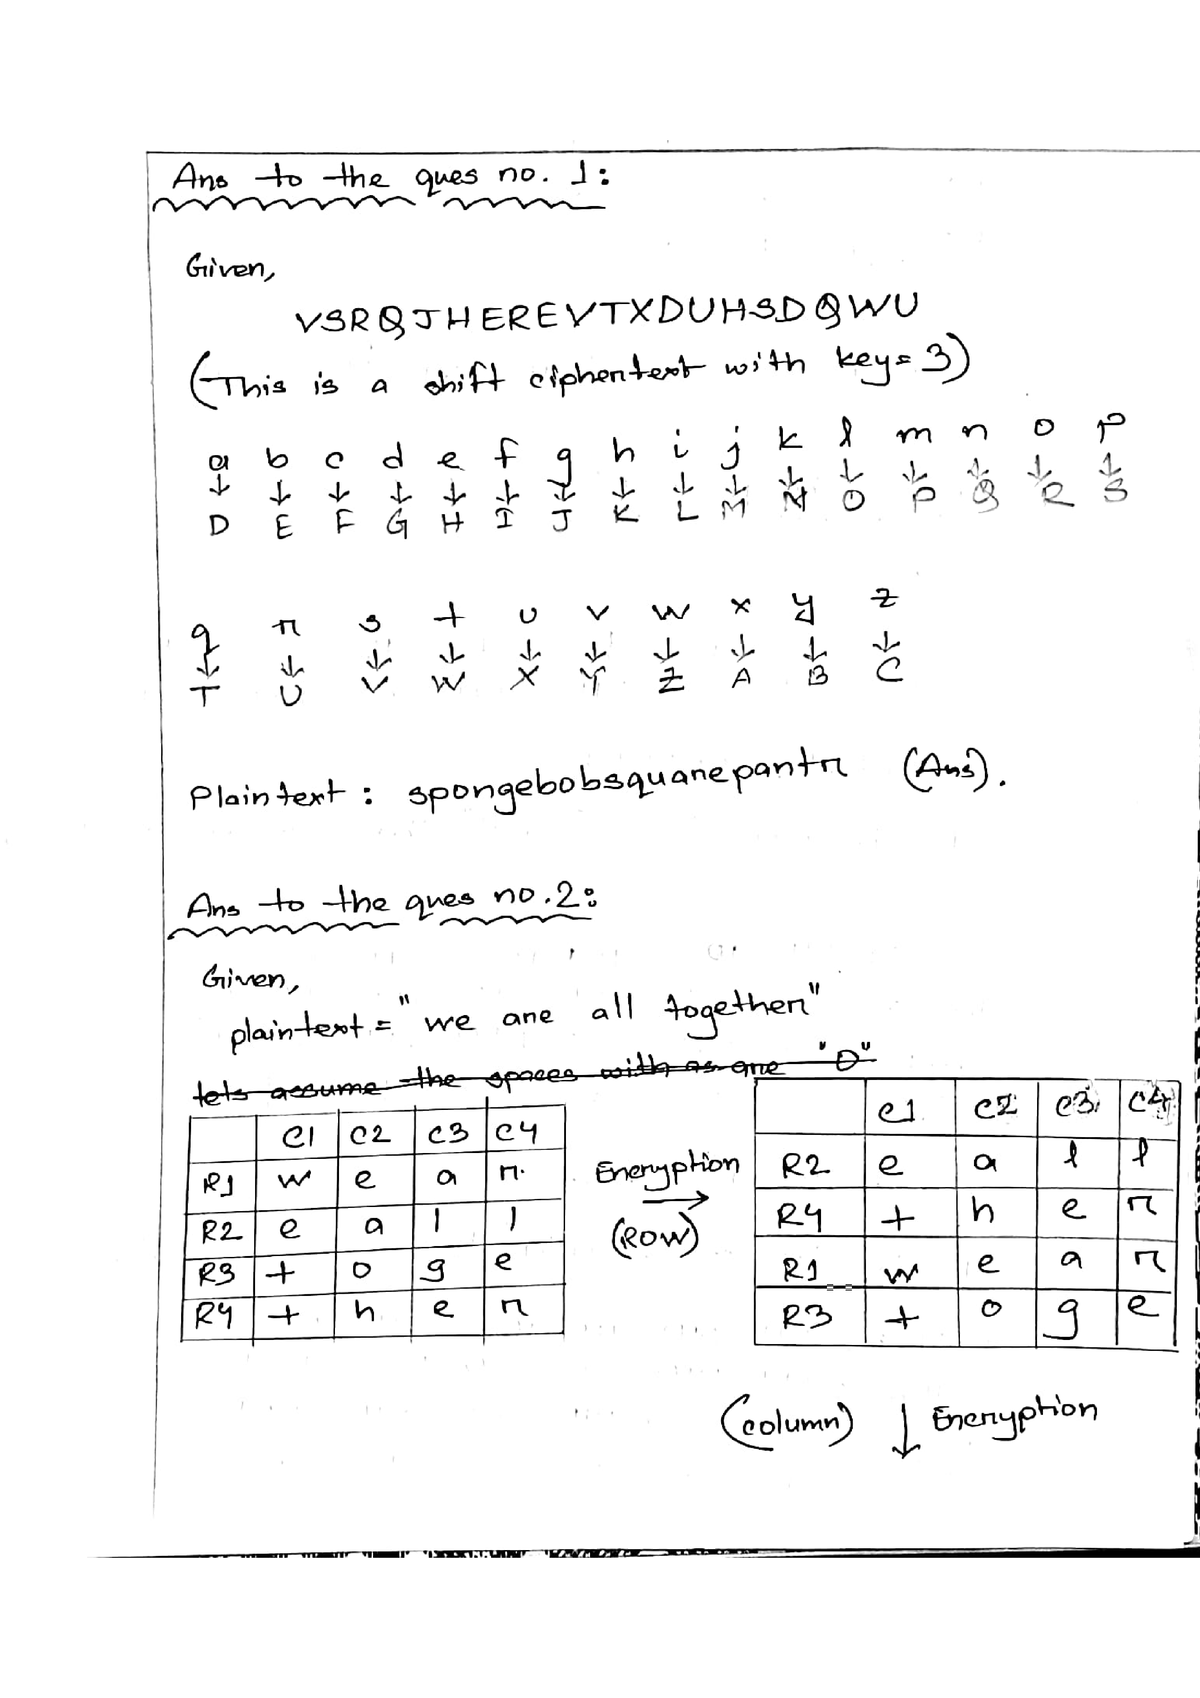 Ans to the ques no. 1:
Given,
VSRQJHEREVTXDUHSDQWU
(This is a shift ciphertext with key= 3)
a b c d e f g h i j k l m n o p
↓ ↓ ↓ ↓ ↓ ↓ ↓ ↓ ↓ ↓ ↓ ↓ ↓ ↓ ↓ ↓
D E F G H I J K L M N O P Q R S
q r s t u v w x y z
↓ ↓ ↓ ↓ ↓ ↓ ↓ ↓ ↓ ↓
T U V W X Y Z A B C
Plaintext : spongebobsquarepantr (Ans).
Ans to the ques no.2:
Given,
plaintext = "we are all together"
lets assume the spaces with as are "0"
C1 C2 C3 C4
R1 w e a r
R2 e a l l
R3 t o g e
R4 t h e r
Encryption
→
(Row)
C1 C2 C3 C4
R2 e a l l
R4 t h e r
R1 w e a r
R3 t o g e
(column) ↓ Encryption